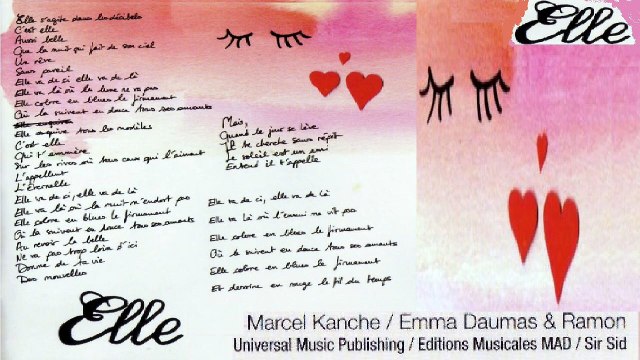 Elle s'agite dans les décibels
C'est elle
Aussi belle
Que la nuit qui fait de son ciel
Un rêve
Sans pareil
Elle va de ci elle va de là
Elle va là où la lune ne va pas
Elle colore en blues le firmament
Où la suivent en douce tous ses amants
Elle esquive
Elle esquive tous les modèles
C'est elle
Qui t'emmène
Sur les rives où tous ceux qui l'aiment
L'appellent
L'éternelle
Elle va de ci, elle va de là
Elle va là où la nuit n'endort pas
Elle colore en blues le firmament
Où la suivent en douce tous ses amants
Au revoir la belle
Ne va pas trop loin d'ici
Donne de ta vie
Des nouvelles
Mais,
Quand le jour se lève
Il te cherche sans répit
Le soleil est un ami
Entend il t'appelle
Elle va de ci, elle va de là
Elle va là où l'ennui ne vit pas
Elle colore en blues le firmament
Où la suivent en douce tous ses amants
Elle colore en blues le firmament
Et dessine en rouge le fil du temps
Elle
Elle
Marcel Kanche / Emma Daumas & Ramon
Universal Music Publishing / Editions Musicales MAD / Sir Sid